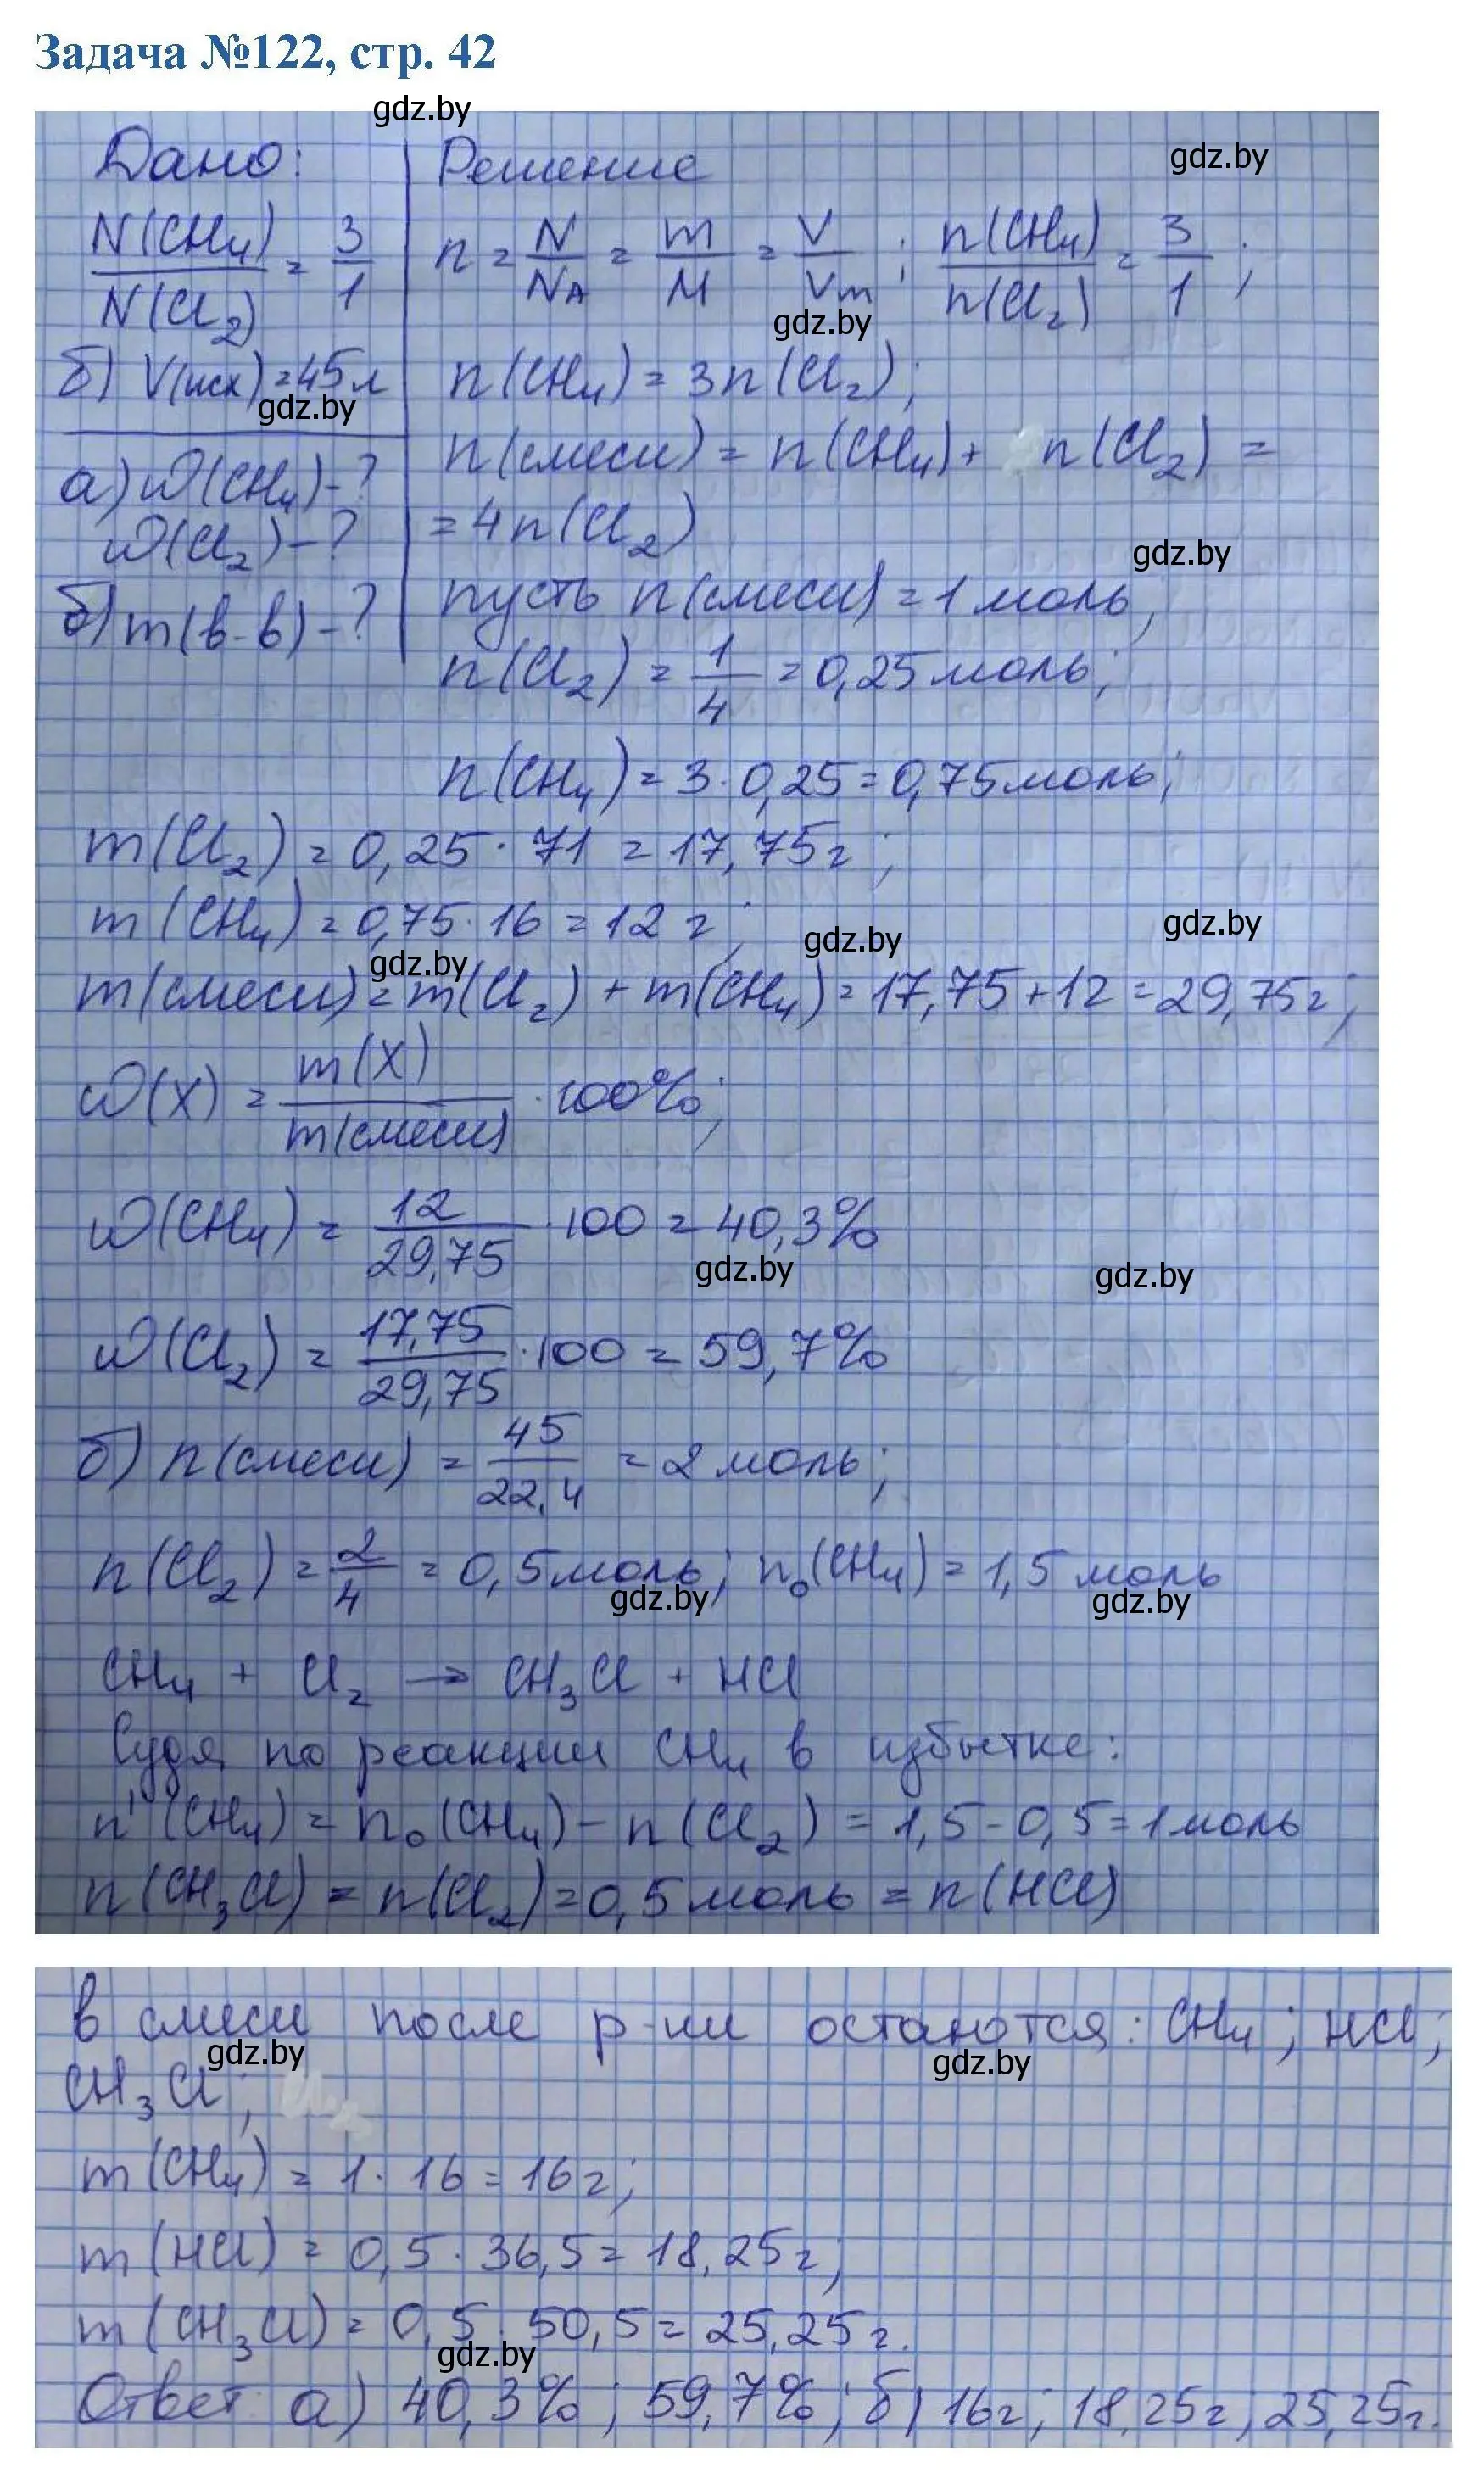 Задача №122, стр. 42
gdz.by
Дано:
N(CH₄)/N(Cl₂) = 3/1
б) V(исх) = 45 л
gdz.by
а) ω(CH₄) - ?
ω(Cl₂) - ?
б) m(в-в) - ?
Решение
gdz.by
n = N/NA = m/M = V/Vm ; n(CH₄)/n(Cl₂) = 3/1 ;
gdz.by
n(CH₄) = 3n(Cl₂);
n(смеси) = n(CH₄) + n(Cl₂) =
= 4n(Cl₂)
gdz.by
пусть n(смеси) = 1 моль,
n(Cl₂) = 1/4 = 0,25 моль;
n(CH₄) = 3 · 0,25 = 0,75 моль;
m(Cl₂) = 0,25 · 71 = 17,75 г ;
m(CH₄) = 0,75 · 16 = 12 г ;
gdz.by gdz.by gdz.by
m(смеси) = m(Cl₂) + m(CH₄) = 17,75 + 12 = 29,75 г ;
ω(X) = m(X)/m(смеси) · 100%;
ω(CH₄) = 12/29,75 · 100 = 40,3%
gdz.by gdz.by
ω(Cl₂) = 17,75/29,75 · 100 = 59,7%
б) n(смеси) = 45/22,4 = 2 моль;
n(Cl₂) = 2/4 = 0,5 моль; n₀(CH₄) = 1,5 моль
gdz.by gdz.by
CH₄ + Cl₂ → CH₃Cl + HCl
Судя по реакции CH₄ в избытке:
n'(CH₄) = n₀(CH₄) - n(Cl₂) = 1,5 - 0,5 = 1 моль
n(CH₃Cl) = n(Cl₂) = 0,5 моль = n(HCl)
в смеси после р-ии остаются: CH₄; HCl;
gdz.by gdz.by
CH₃Cl;
m(CH₄) = 1 · 16 = 16 г;
m(HCl) = 0,5 · 36,5 = 18,25 г;
m(CH₃Cl) = 0,5 · 50,5 = 25,25 г.
gdz.by
Ответ: а) 40,3% ; 59,7% ; б) 16 г; 18,25 г; 25,25 г.